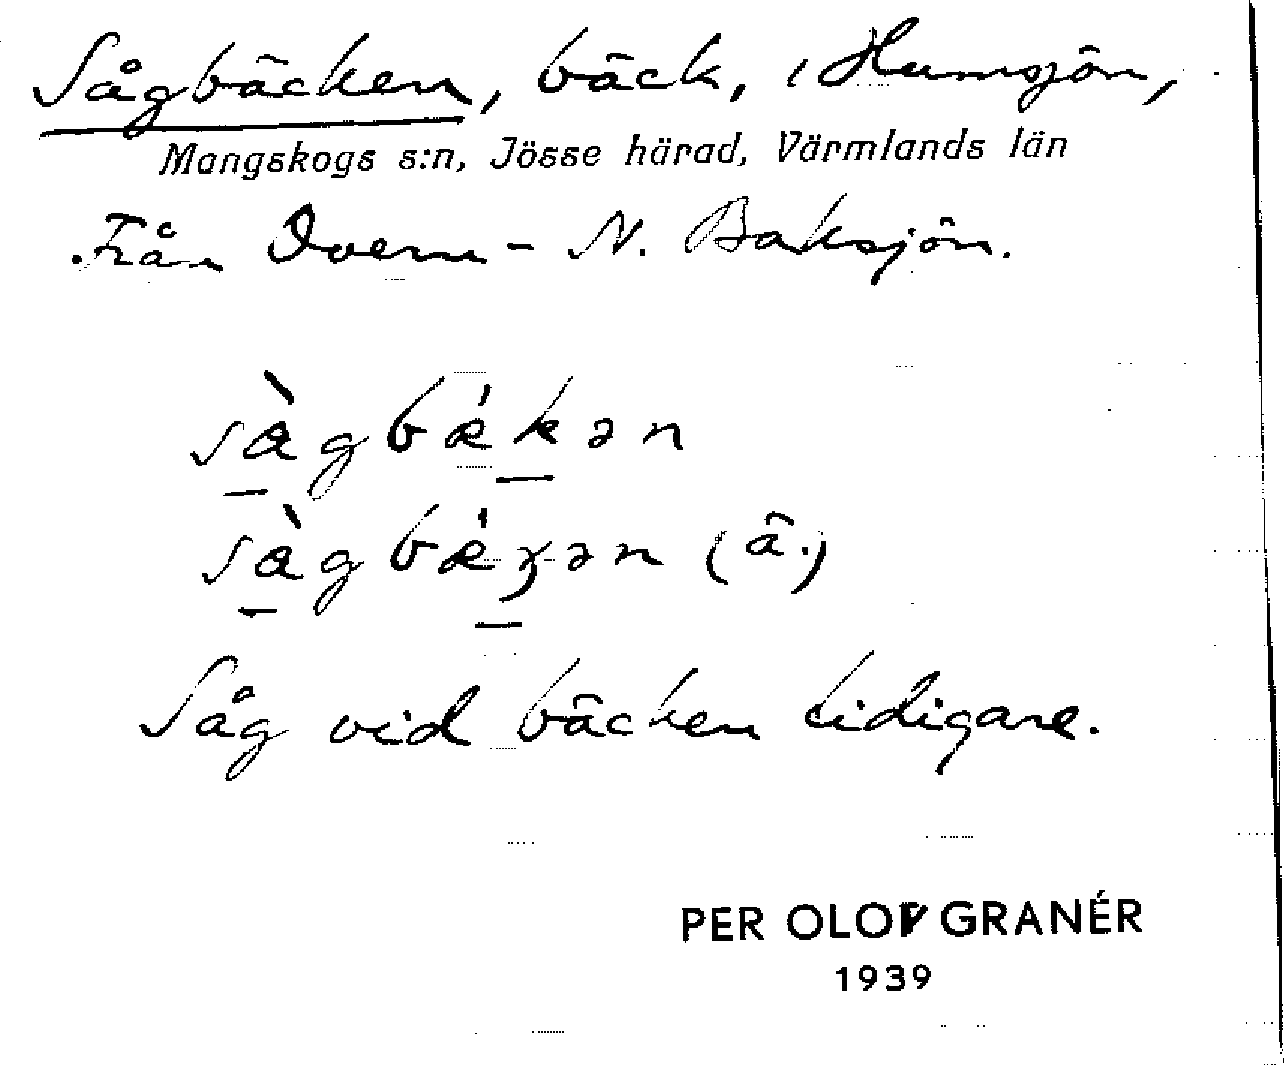 Sågbäcken, bäck, i Humsjön,
Mangskogs s:n, Jösse härad, Värmlands län
Från Overu - N. Baksjön.
sàgbǽkən
sàgbǽɣən (ä.)
Såg vid bäcken tidigare.
PER OLOF GRANÉR
1939